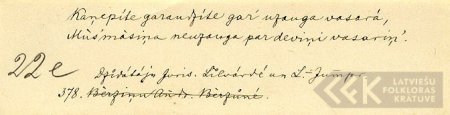 Kaņepīte garaudzīte gar' uzauga vasarā,
Mūs' māsiņa neuzauga par deviņi vasariņ'.
22e
Dzidātājs Juris. Lēlvārdē un L.-Jumpr.
378. Bērziņu Andr. Bērzūnē.
LATVIEŠU
FOLKLORAS
KRĀTUVE